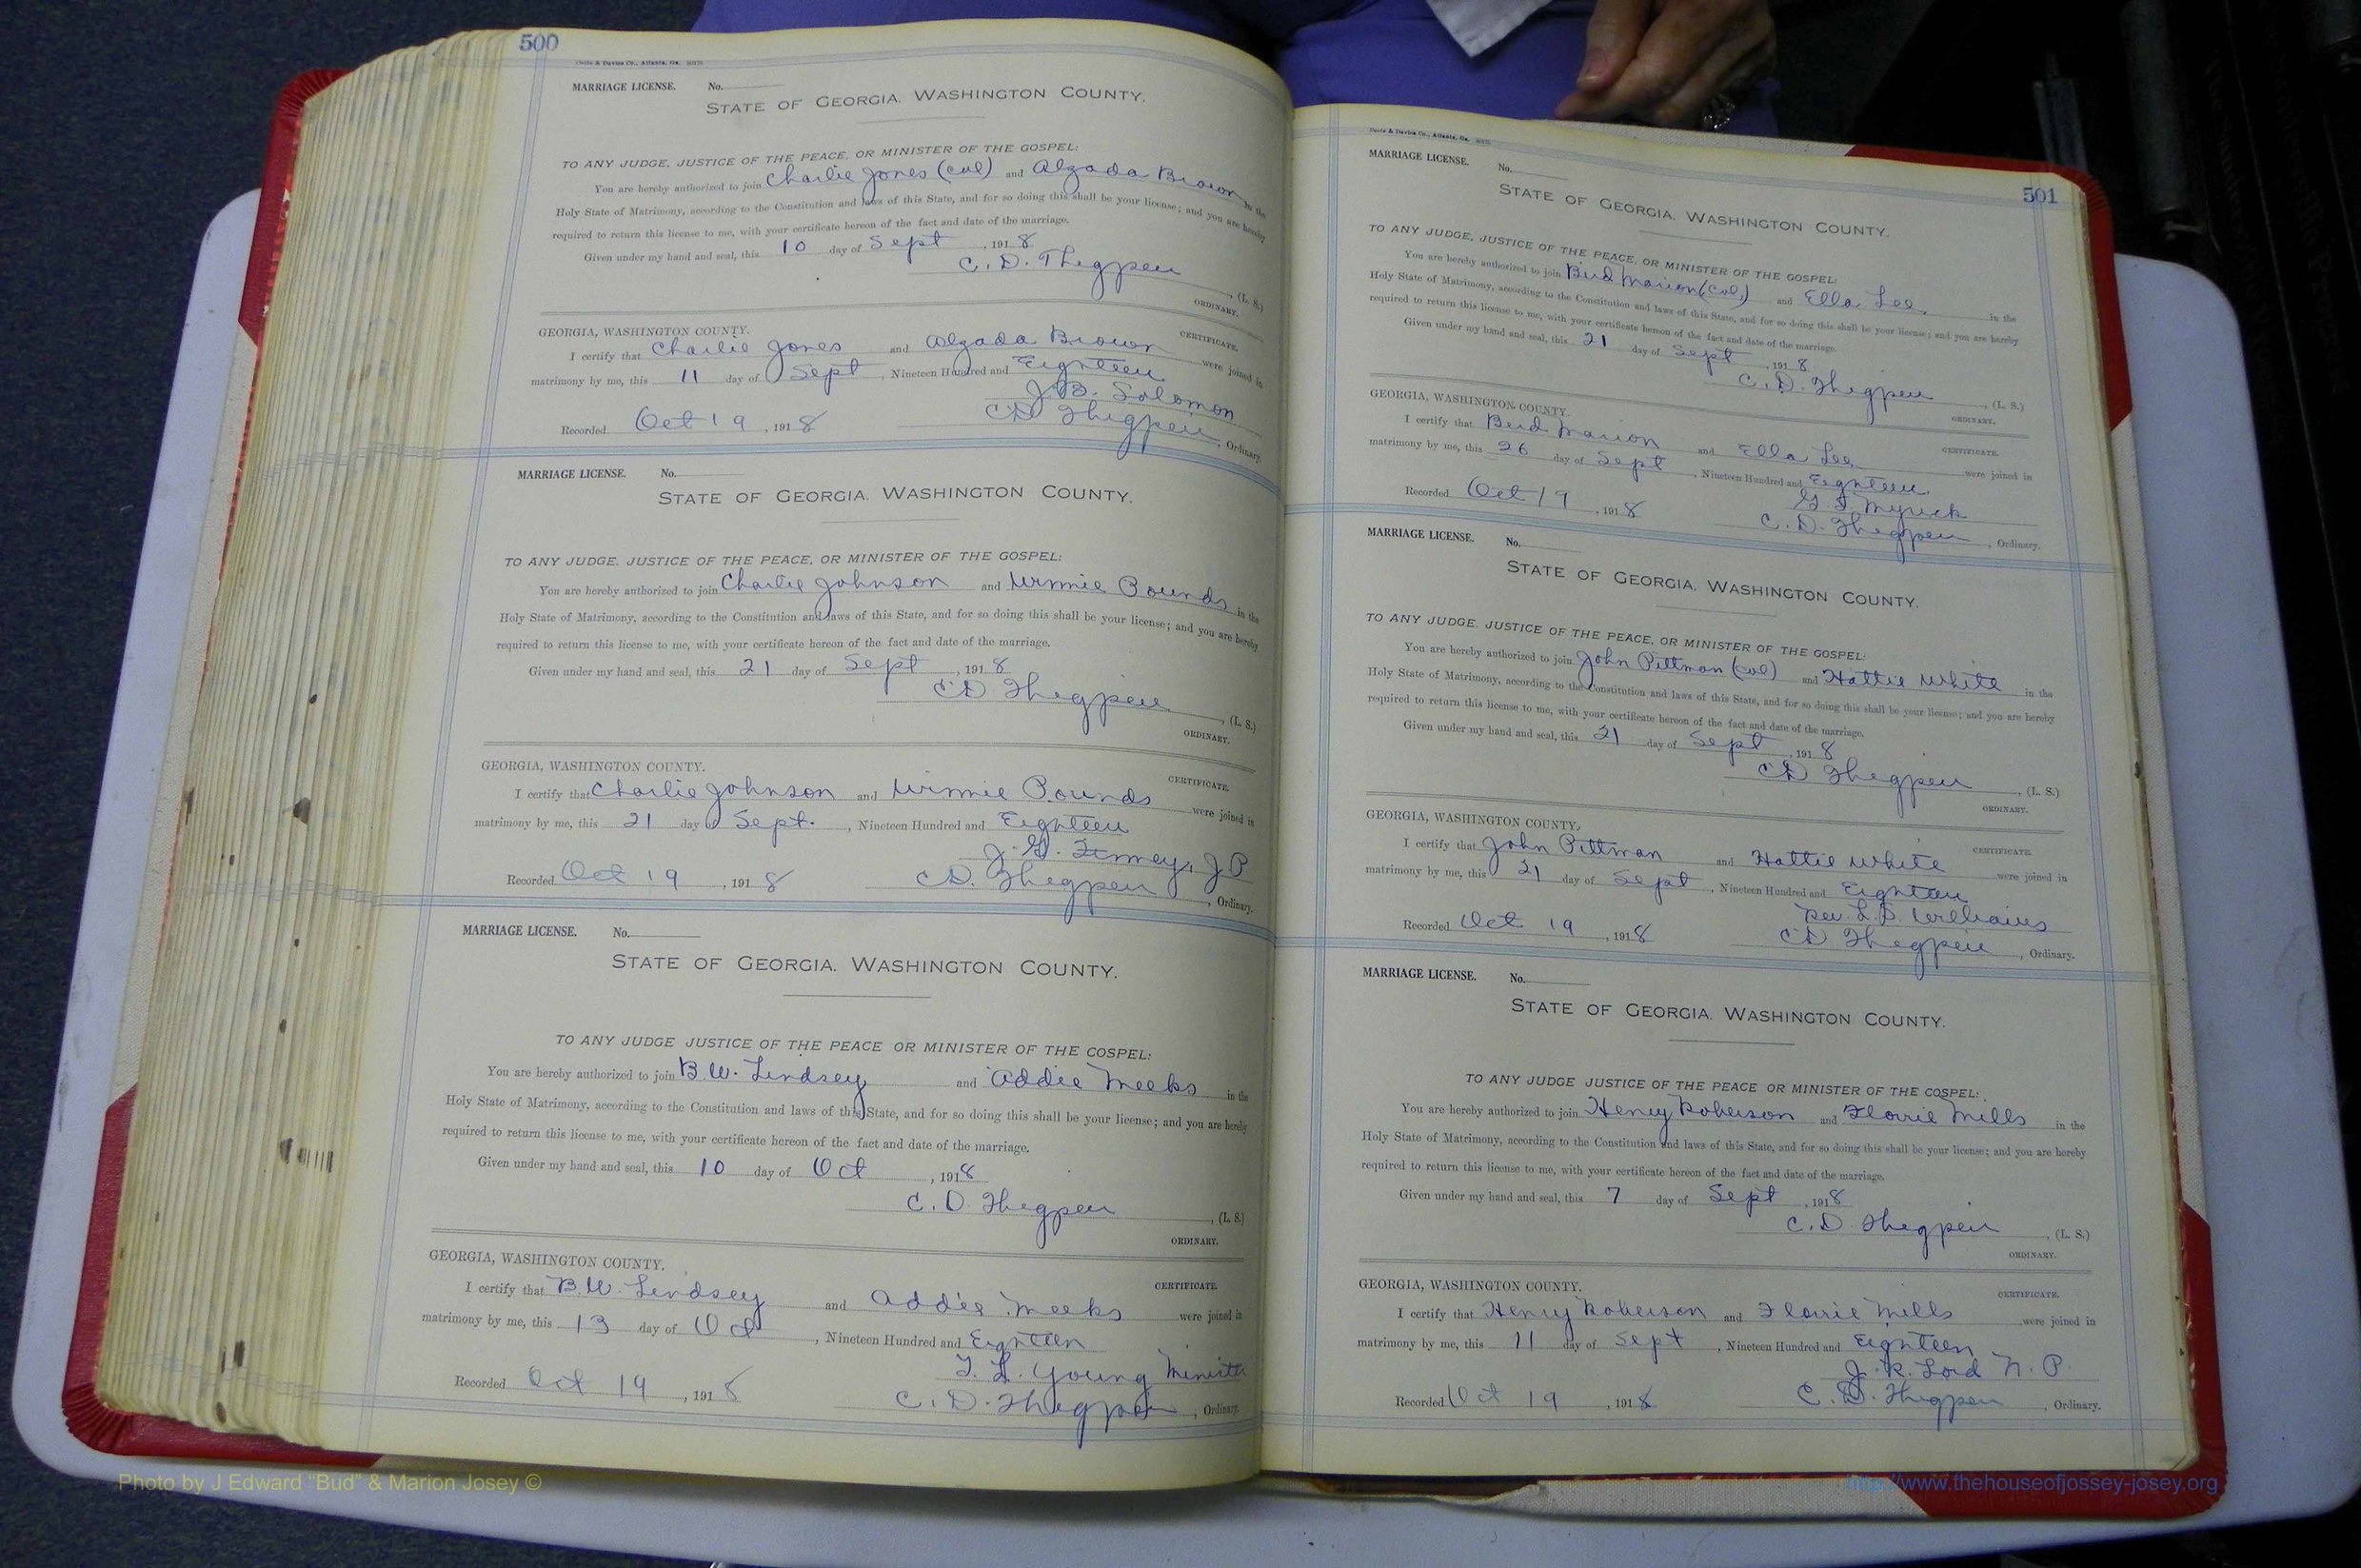 500
MARRIAGE LICENSE. No.
STATE OF GEORGIA. WASHINGTON COUNTY.
TO ANY JUDGE, JUSTICE OF THE PEACE, OR MINISTER OF THE GOSPEL:
You are hereby authorized to join Charlie Jones (col) and Algada Brown in the
Holy State of Matrimony, according to the Constitution and laws of this State, and for so doing this shall be your license; and you are hereby
required to return this license to me, with your certificate hereon of the fact and date of the marriage.
Given under my hand and seal, this 10 day of Sept, 1918
C. D. Thigpen, (L. S.)
ORDINARY.
GEORGIA, WASHINGTON COUNTY. CERTIFICATE.
I certify that Charlie Jones and Algada Brown were joined in
matrimony by me, this 11 day of Sept, Nineteen Hundred and Eighteen
J. B. Solomon
Recorded Oct 19, 1918 C D Thigpen, Ordinary.
MARRIAGE LICENSE. No.
STATE OF GEORGIA. WASHINGTON COUNTY.
TO ANY JUDGE, JUSTICE OF THE PEACE, OR MINISTER OF THE GOSPEL:
You are hereby authorized to join Charlie Johnson and Winnie Pounds in the
Holy State of Matrimony, according to the Constitution and laws of this State, and for so doing this shall be your license; and you are hereby
required to return this license to me, with your certificate hereon of the fact and date of the marriage.
Given under my hand and seal, this 21 day of Sept, 1918
C D Thigpen, (L. S.)
ORDINARY.
GEORGIA, WASHINGTON COUNTY. CERTIFICATE.
I certify that Charlie Johnson and Winnie Pounds were joined in
matrimony by me, this 21 day of Sept., Nineteen Hundred and Eighteen
J. G. Finney, J P
Recorded Oct 19, 1918 C D. Thigpen, Ordinary.
MARRIAGE LICENSE. No.
STATE OF GEORGIA. WASHINGTON COUNTY.
TO ANY JUDGE JUSTICE OF THE PEACE OR MINISTER OF THE GOSPEL:
You are hereby authorized to join B. W. Lindsey and Addie Meeks in the
Holy State of Matrimony, according to the Constitution and laws of this State, and for so doing this shall be your license; and you are hereby
required to return this license to me, with your certificate hereon of the fact and date of the marriage.
Given under my hand and seal, this 10 day of Oct, 1918
C. D. Thigpen, (L. S.)
ORDINARY.
GEORGIA, WASHINGTON COUNTY. CERTIFICATE.
I certify that B. W. Lindsey and Addie Meeks were joined in
matrimony by me, this 13 day of Oct, Nineteen Hundred and Eighteen
T. L. Young Minister
Recorded Oct 19, 1918 C. D. Thigpen, Ordinary.
501
MARRIAGE LICENSE. No.
STATE OF GEORGIA. WASHINGTON COUNTY.
TO ANY JUDGE, JUSTICE OF THE PEACE, OR MINISTER OF THE GOSPEL:
You are hereby authorized to join Bird Marion (col) and Ella Lee in the
Holy State of Matrimony, according to the Constitution and laws of this State, and for so doing this shall be your license; and you are hereby
required to return this license to me, with your certificate hereon of the fact and date of the marriage.
Given under my hand and seal, this 21 day of Sept, 1918
C. D. Thigpen, (L. S.)
ORDINARY.
GEORGIA, WASHINGTON COUNTY. CERTIFICATE.
I certify that Bird Marion and Ella Lee were joined in
matrimony by me, this 26 day of Sept, Nineteen Hundred and Eighteen
Myrick
Recorded Oct 19, 1918 C. D. Thigpen, Ordinary.
MARRIAGE LICENSE. No.
STATE OF GEORGIA. WASHINGTON COUNTY.
TO ANY JUDGE. JUSTICE OF THE PEACE, OR MINISTER OF THE GOSPEL:
You are hereby authorized to join John Pittman (col) and Hattie White in the
Holy State of Matrimony, according to the Constitution and laws of this State, and for so doing this shall be your license; and you are hereby
required to return this license to me, with your certificate hereon of the fact and date of the marriage.
Given under my hand and seal, this 21 day of Sept, 1918
C D Thigpen, (L. S.)
ORDINARY.
GEORGIA, WASHINGTON COUNTY. CERTIFICATE.
I certify that John Pittman and Hattie White were joined in
matrimony by me, this 21 day of Sept, Nineteen Hundred and Eighteen
Rev. L. B. Williams
Recorded Oct 19, 1918 C D Thigpen, Ordinary.
MARRIAGE LICENSE. No.
STATE OF GEORGIA. WASHINGTON COUNTY.
TO ANY JUDGE JUSTICE OF THE PEACE OR MINISTER OF THE GOSPEL:
You are hereby authorized to join Henry Roberson and Florrie Mills in the
Holy State of Matrimony, according to the Constitution and laws of this State, and for so doing this shall be your license; and you are hereby
required to return this license to me, with your certificate hereon of the fact and date of the marriage.
Given under my hand and seal, this 7 day of Sept, 1918
C. D. Thigpen, (L. S.)
ORDINARY.
GEORGIA, WASHINGTON COUNTY. CERTIFICATE.
I certify that Henry Roberson and Florrie Mills were joined in
matrimony by me, this 11 day of Sept, Nineteen Hundred and Eighteen
J. R. Lord N. P.
Recorded Oct 19, 1918 C. D. Thigpen, Ordinary.
Photo by J Edward “Bud” & Marion Josey ©
http://www.thehouseofjossey-josey.org